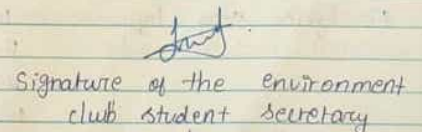 Signature of the environment
club student secretary